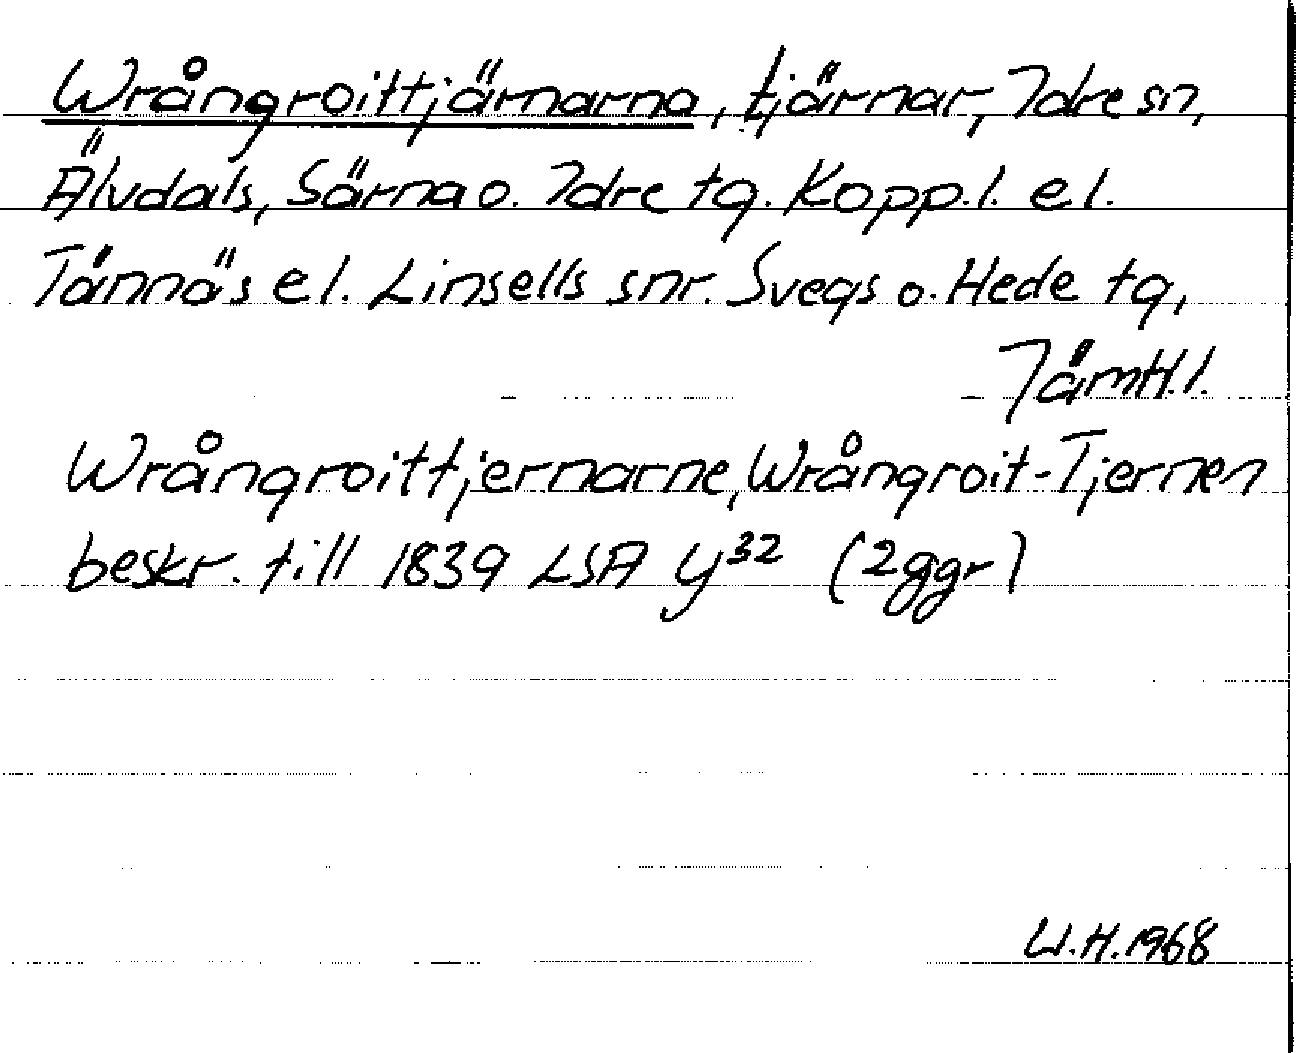 Wrångroittjärnarna, tjärnar, Idre sn,
Älvdals, Särna o. Idre tg. Kopp.l. el.
Tännäs el. Linsells snr. Svegs o. Hede tg,
Jämtl.l.
Wrångroittjernarne, Wrångroit-Tjernen
beskr. till 1839 LSA Y³² (2 ggr)
W.H. 1968